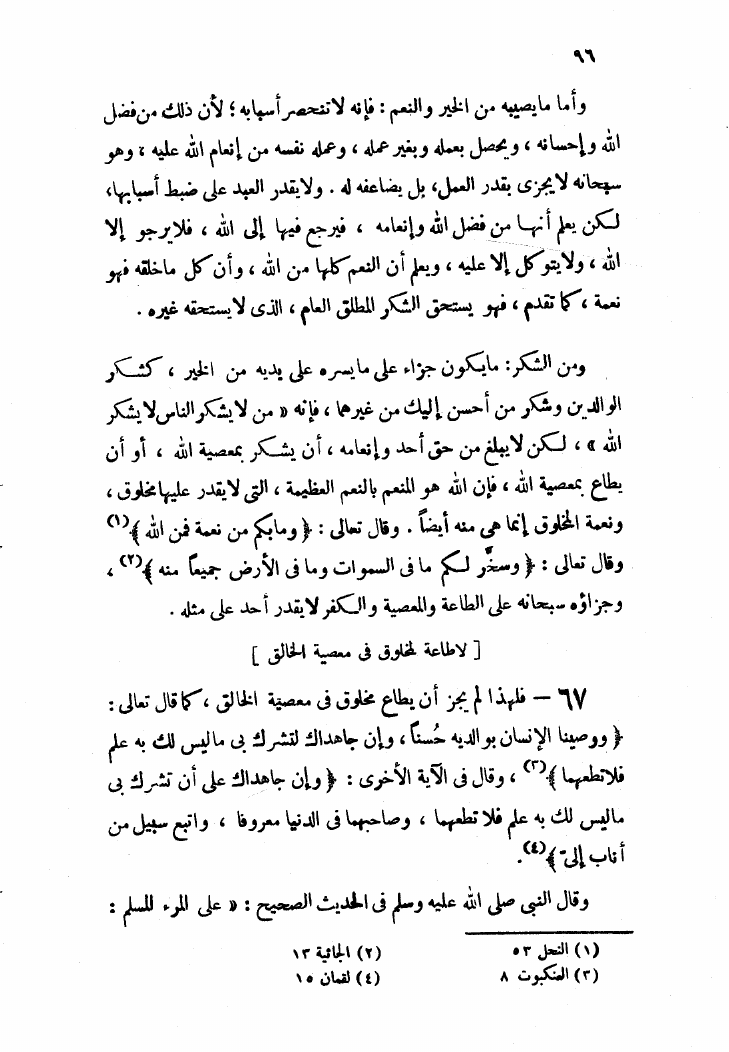 ٩٦
وأما ما يصيبه من الخير والنعم : فإنه لا تنحصر أسبابه ؛ لأن ذلك من فضل
الله وإحسانه ، ويحصل بعمله وبغير عمله ، وعمله نفسه من إنعام الله عليه ، وهو
سبحانه لا يجزى بقدر العمل، بل يضاعفه له . ولا يقدر العبد على ضبط أسبابها،
لكن يعلم أنها من فضل الله وإنعامه ، فيرجع فيها إلى الله ، فلا يرجو إلا
الله ، ولا يتوكل إلا عليه ، ويعلم أن النعم كلها من الله ، وأن كل ما خلقه فهو
نعمة ، كما تقدم ، فهو يستحق الشكر المطلق العام ، الذى لا يستحقه غيره .
ومن الشكر : ما يكون جزاء على ما يسره على يديه من الخير ، كشكر
الوالدين وشكر من أحسن إليك من غيرهما ، فإنه « من لا يشكر الناس لا يشكر
الله » ، لكن لا يبلغ من حق أحد وإنعامه ، أن يشكر بمعصية الله ، أو أن
يطاع بمعصية الله ، فإن الله هو المنعم بالنعم العظيمة ، التى لا يقدر عليها مخلوق ،
ونعمة المخلوق إنما هى منه أيضاً . وقال تعالى : ﴿ وما بكم من نعمة فمن الله ﴾(١)
وقال تعالى : ﴿ وسخَّر لكم ما فى السموات وما فى الأرض جميعاً منه ﴾(٢) ،
وجزاؤه سبحانه على الطاعة والمعصية والكفر لا يقدر أحد على مثله .
[ لا طاعة لمخلوق فى معصية الخالق ]
٦٧ – فلهذا لم يجز أن يطاع مخلوق فى معصية الخالق ، كما قال تعالى :
﴿ ووصينا الإنسان بوالديه حُسناً ، وإن جاهداك لتشرك بى ما ليس لك به علم
فلا تطعهما ﴾(٣) ، وقال فى الآية الأخرى : ﴿ وإن جاهداك على أن تشرك بى
ما ليس لك به علم فلا تطعهما ، وصاحبهما فى الدنيا معروفا ، واتبع سبيل من
أناب إلىّ ﴾(٤).
وقال النبى صلى الله عليه وسلم فى الحديث الصحيح : « على المرء المسلم :
(١) النحل ٥٣ (٢) الجاثية ١٣
(٣) العنكبوت ٨ (٤) لقمان ١٥